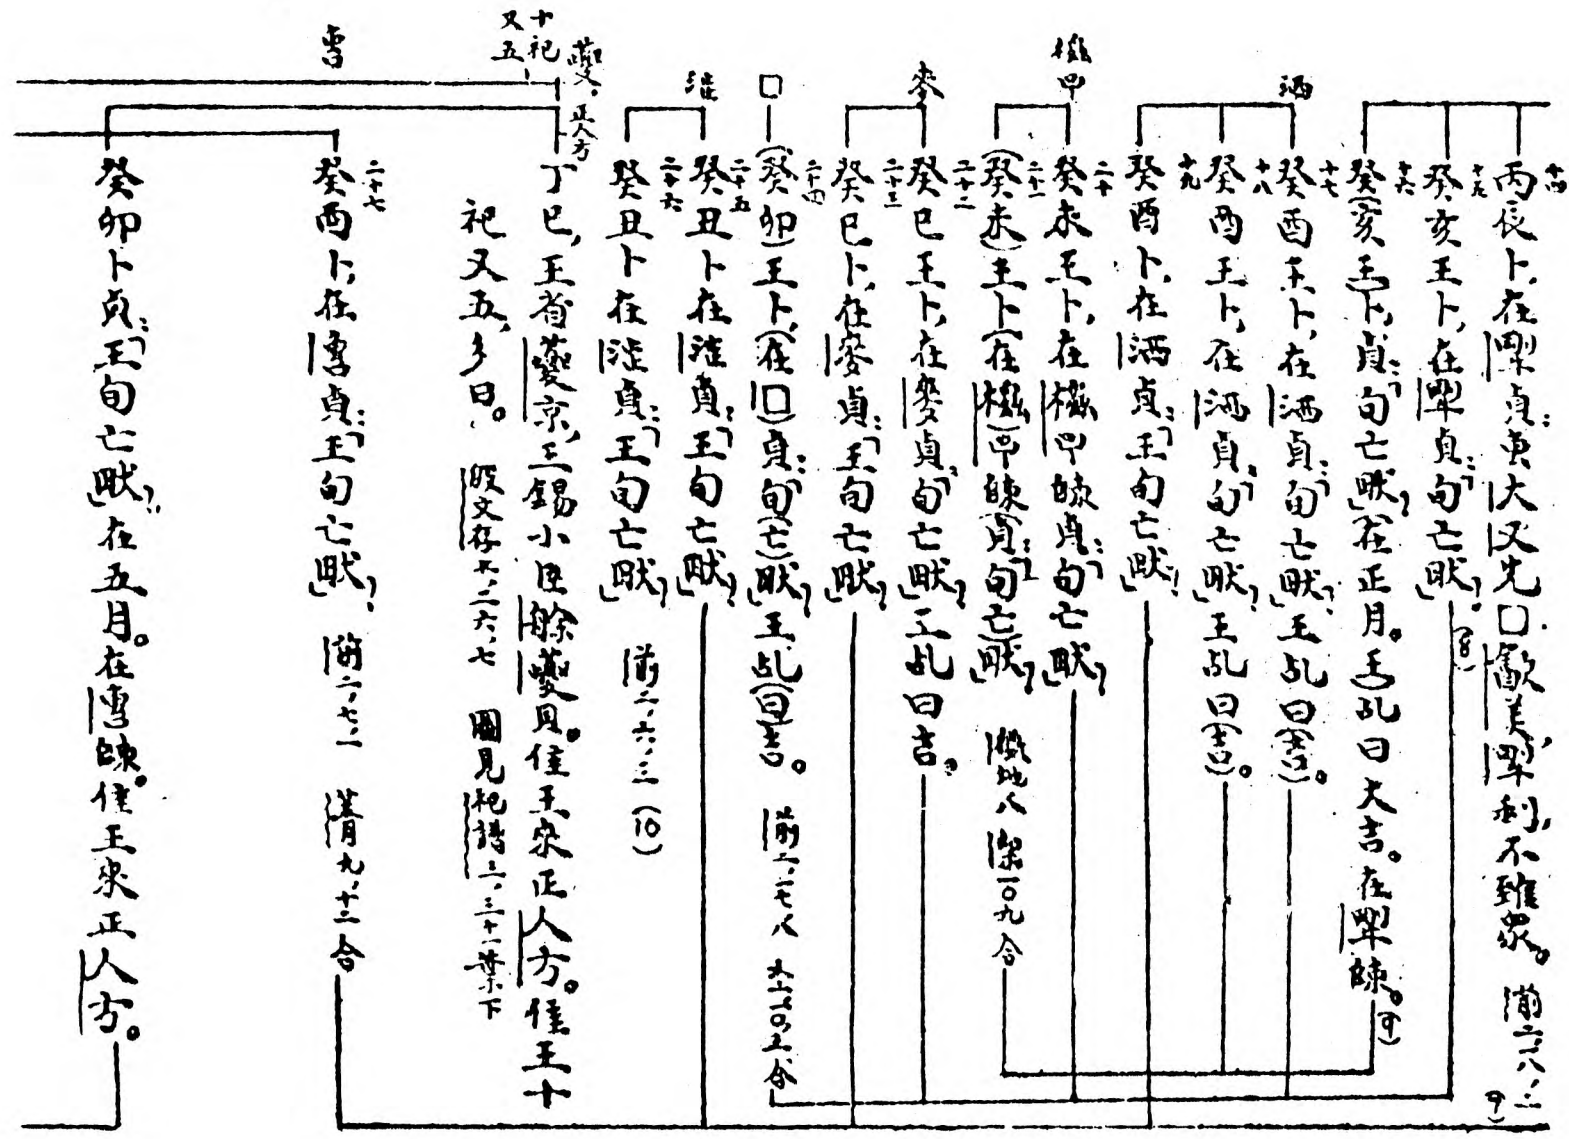 十四
丙辰卜，在犅貞：叀大又先□歔美犅利，不雉眾。 前二、一八、二
十五
癸亥王卜，在犅貞：「旬亡畎」？ (8)
十六
癸(亥王)卜，貞：「旬亡畎」？(在)正月。(王)乩曰大吉。在犅𠂤。(9)
洒
十七
癸酉王卜，在洒貞：「旬亡畎」？王乩曰(吉)。
十八
癸酉王卜，在洒貞：「旬亡畎」？王乩曰(吉)。
十九
癸酉卜，在洒貞：「王旬亡畎」？
甲
二十
癸未王卜，在甲貞：「旬亡畎」？
二十一
(癸未)王卜(在)甲(貞)：「旬亡(畎)」？ 一〇九合
麥
二十二
癸巳王卜，在麥貞：「旬亡畎」？王乩曰吉。
二十三
癸巳卜，在麥貞：「王旬亡畎」？
□
二十四
(癸卯)王卜，(在□)貞：「旬(亡)畎」？王乩(曰)吉。 前二、一七、八
二十五
癸丑卜在貞：「王旬亡畎」？
二十六
癸丑卜在貞：「王旬亡畎」？ 前二、六、三 (10)
十祀又五
夔。正人方
丁巳，王省夔京，王錫小臣艅夔貝。隹王來正人方。隹王十
祀又五，彡日。 殷文存上、二六、七 圖見祀譜三、三十一葉下
二十七
癸酉卜，在貞：「王旬亡畎」？ 前二、七、一 菁九、十二合
癸卯卜貞：「王旬亡畎」？在五月。在。隹王來正人方。